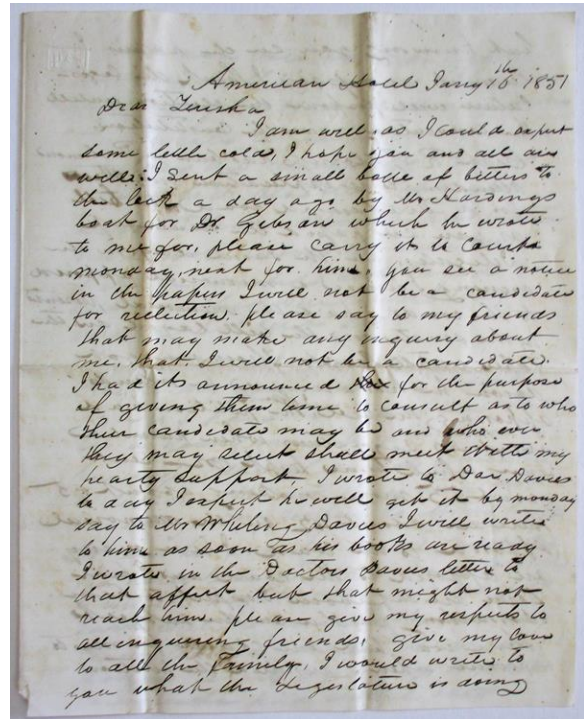 American Hotel Jany 16th 1851
Dear
I am well as I could expect
some little cold, I hope you and all are
well. I sent a small botle of bitters to
the lock a day ago by Mr Hardings
boat for Dr Gibson which he wrote
to me for, please carry it to Court
monday next for him, you see a notice
in the papers I will not be a candidate
for reelection, please say to my friends
that may make any inquiry about
me, that I will not be a candidate.
I had its announced for the purpose
of giving them time to consult as to who
their candidate may be and who ever
they may select shall meet with my
hearty support I wrote to Doc Davies
to day I expect he will get it by monday
say to Mr Whiting Davies I will write
to him as soon as his books are ready
I wrote in the Doctors Davies letter to
that affect but that might not
reach him. please give my respects to
all inquering friends, give my love
to all the Family, I would write to
you what the Legislature is doing